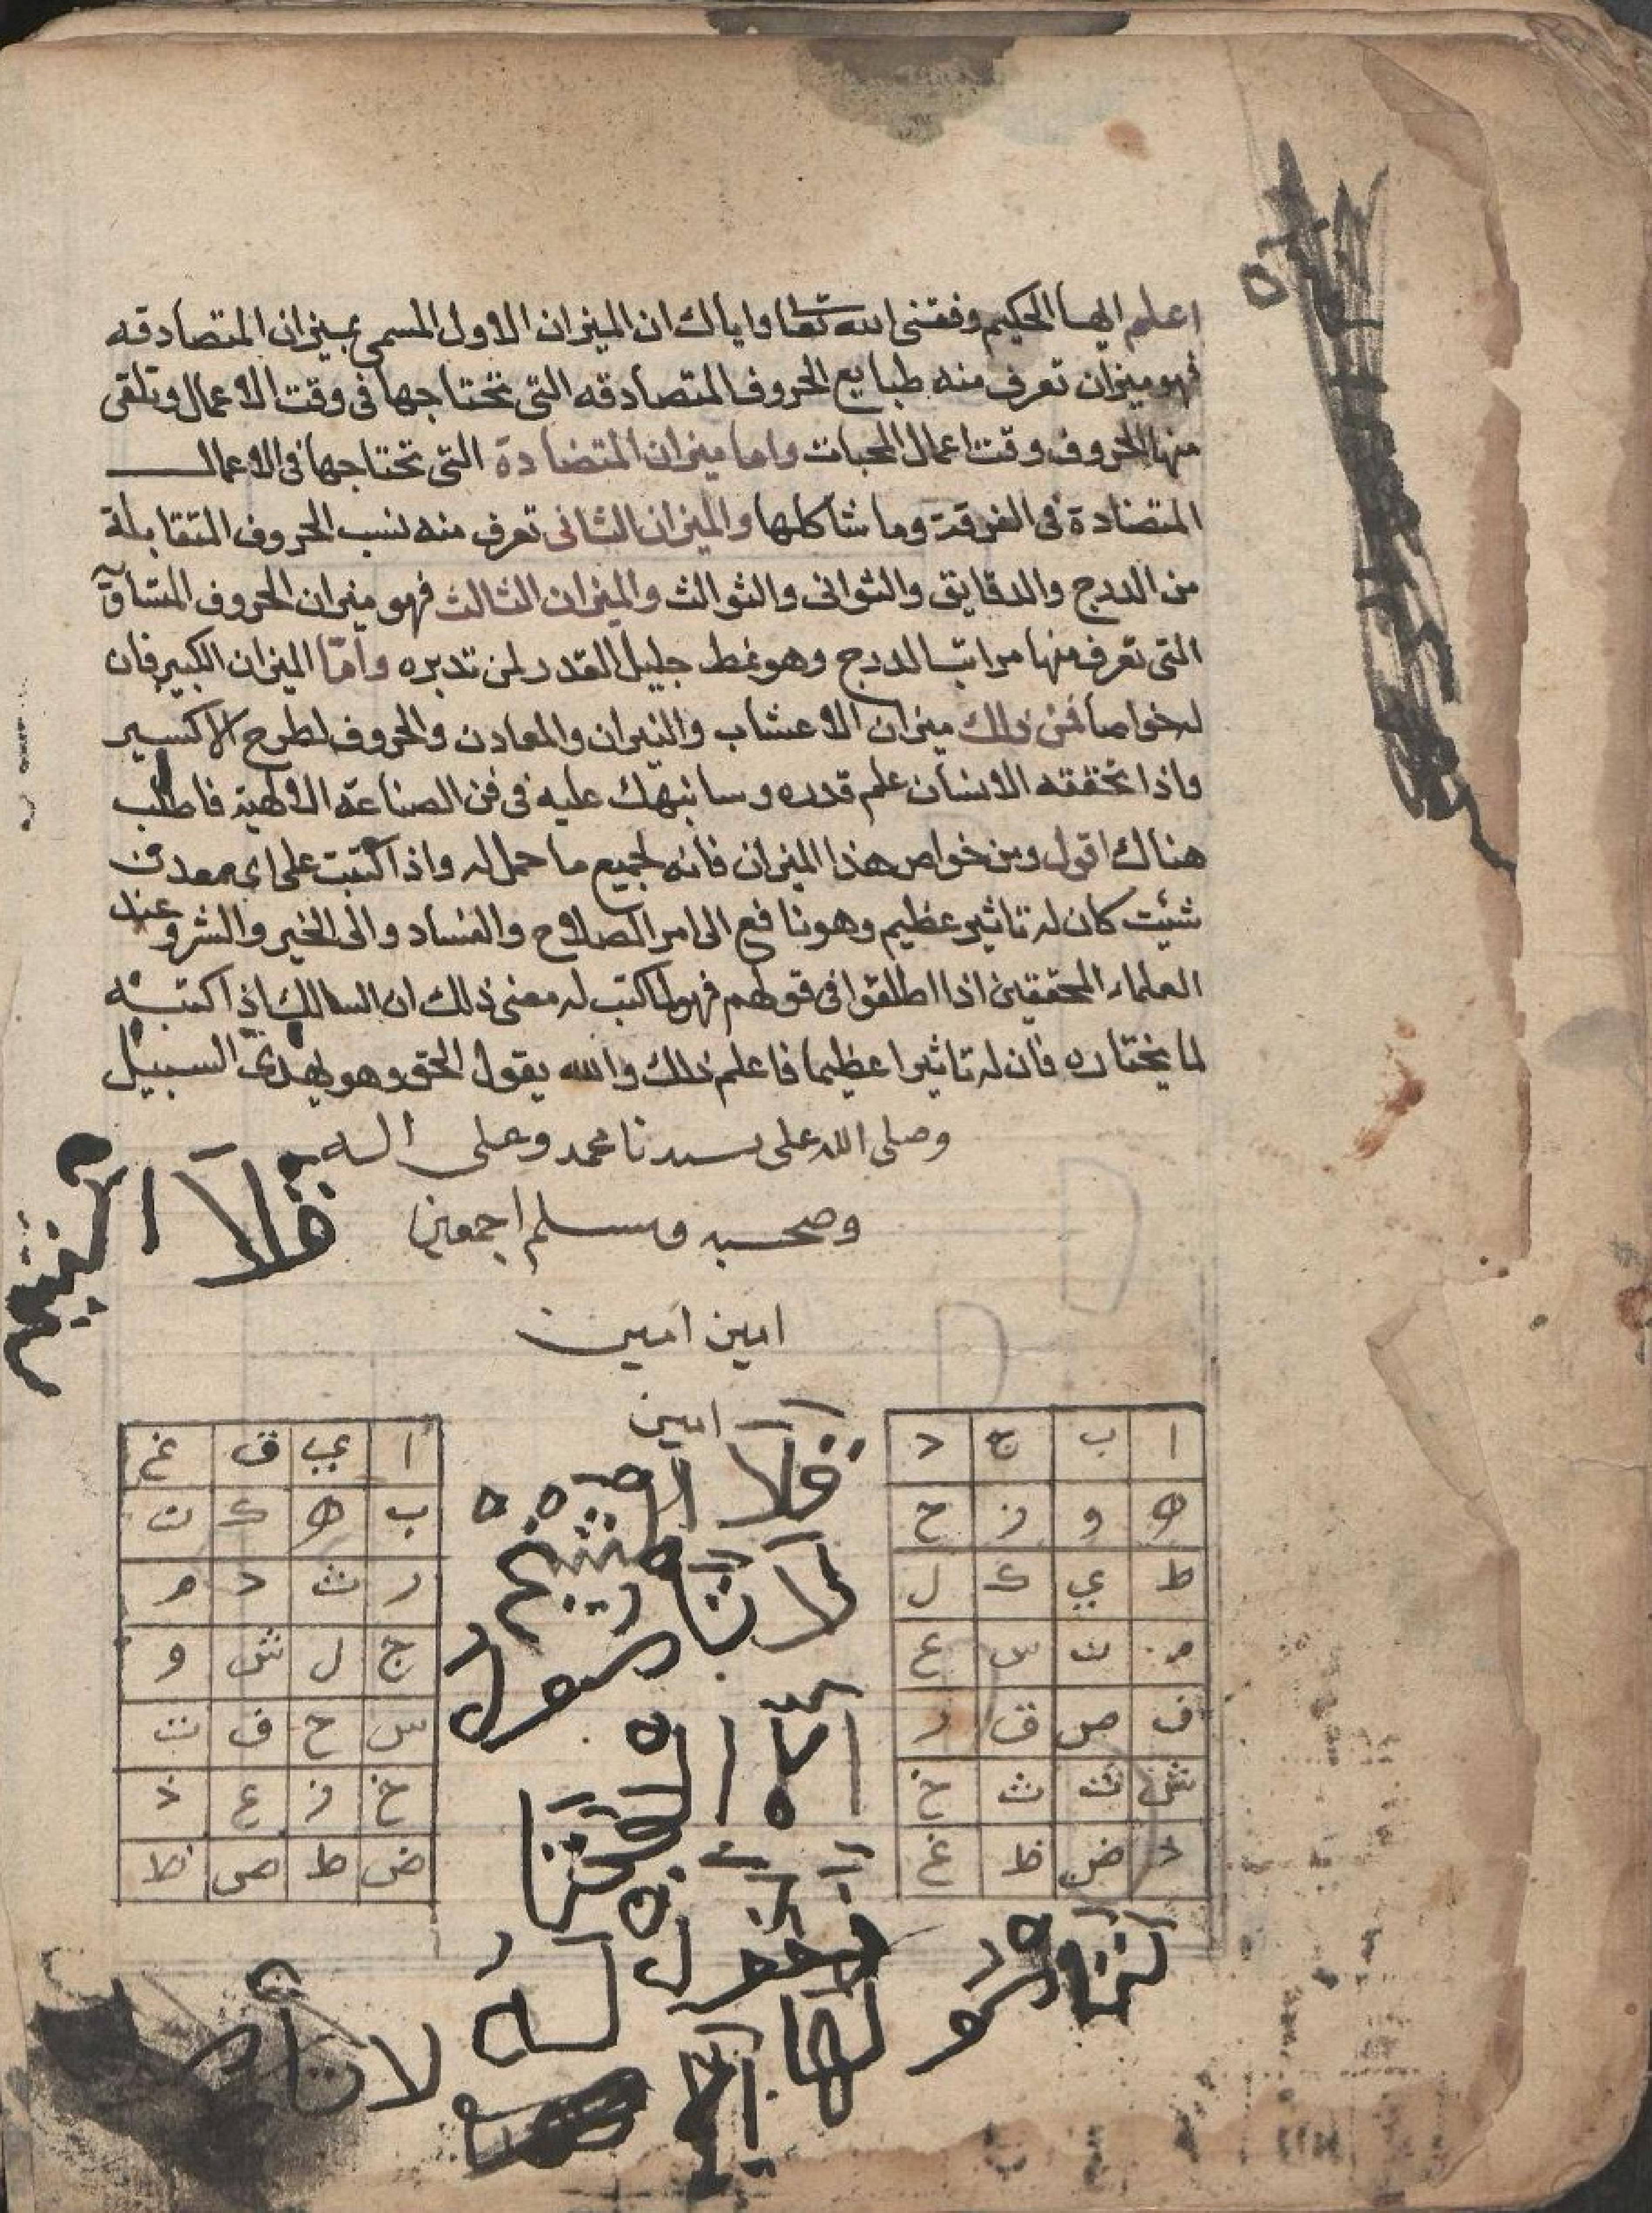 اعلم ايها الحكيم وفقنى الله تعا واياك ان الميزان الاول المسمى بميزان المتصادقه
فهو ميزان تعرف منه طبايع الحروف المتصادقه التى تحتاجها فى وقت الاعمال وتلقى
منها الحروف وقت اعمال المحبات واما ميزان المتضادة التى تحتاجها فى الاعمال
المتضادة فى الفرقة وما شاكلها والميزان الثانى تعرف منه نسب الحروف المتقابلة
من الدرج والدقايق والثوانى والثوالث والميزان الثالث فهو ميزان الحروف المتساق
التى تعرف منها مراتب الدرج وهو نمط جليل القدر لمن تدبره وامّا الميزان الكبير فان
له خواصا فمن ذلك ميزان الاعشاب والنيران والمعادن والحروف لطرح الاكسير
واذا تحققه الانسان علم قدره وسانبهك عليه فى فن الصناعة الالهية فاطلب
هناك اقول ومن خواص هذا الميزان فانه لجميع ما حمل له واذ اكتبت على اى معدن
شئيت كان له تاثير عظيم وهو نافع الى امر الصلاح والفساد والى الخير والشر وعند
العلماء المحققين اذا اطلقوا فى قولهم فهو لما كتب له معنى ذلك ان السالك اذ اكتبه
لما يختاره فان له تاثيرا عظيما فاعلم ذلك والله يقول الحق وهو يهدى السبيل
وصلى الله على سيدنا محمد وعلى اله
وصحبه وسلم اجمعين
امين امين
امين
ا ب ج د
ه و ز ح
ط ي ك ل
م ن س ع
ف ص ق ر
ش ت ث خ
ذ ض ظ غ
ا ي ق غ
ب ه ك ن
ر ث د م
ج ل ش و
س ح ف ت
خ ز ع ذ
ض ط ص ظ